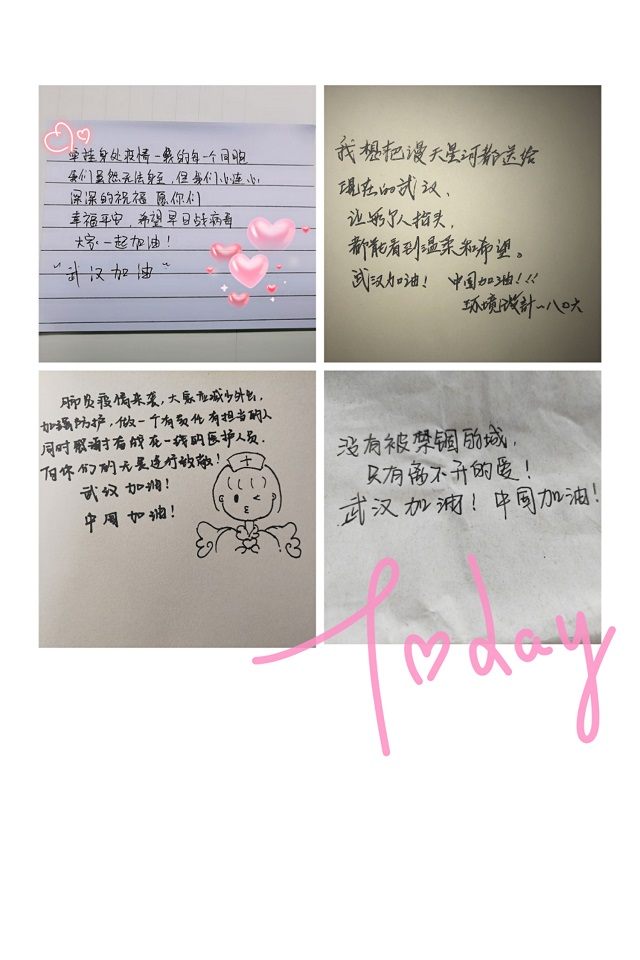 牵挂身处疫情一线的每一个同胞
我们虽然无法身至,但我们心连心
深深的祝福 愿你们
幸福平安,希望早日战病毒
大家一起加油!
"武汉加油"
我想把漫天星河都送给
现在的武汉,
让每个人抬头,
都能看到温柔和希望。
武汉加油! 中国加油!!!
环境设計一八〇六
肺炎疫情来袭,大家应减少外出,
加强防护,做一个有责任有担当的人
同时致谢奋战在一线的医护人员.
向你们的无畏逆行致敬!
武汉加油!
中国加油!
没有被禁锢的城,
只有离不开的爱!
武汉加油! 中国加油!
Today